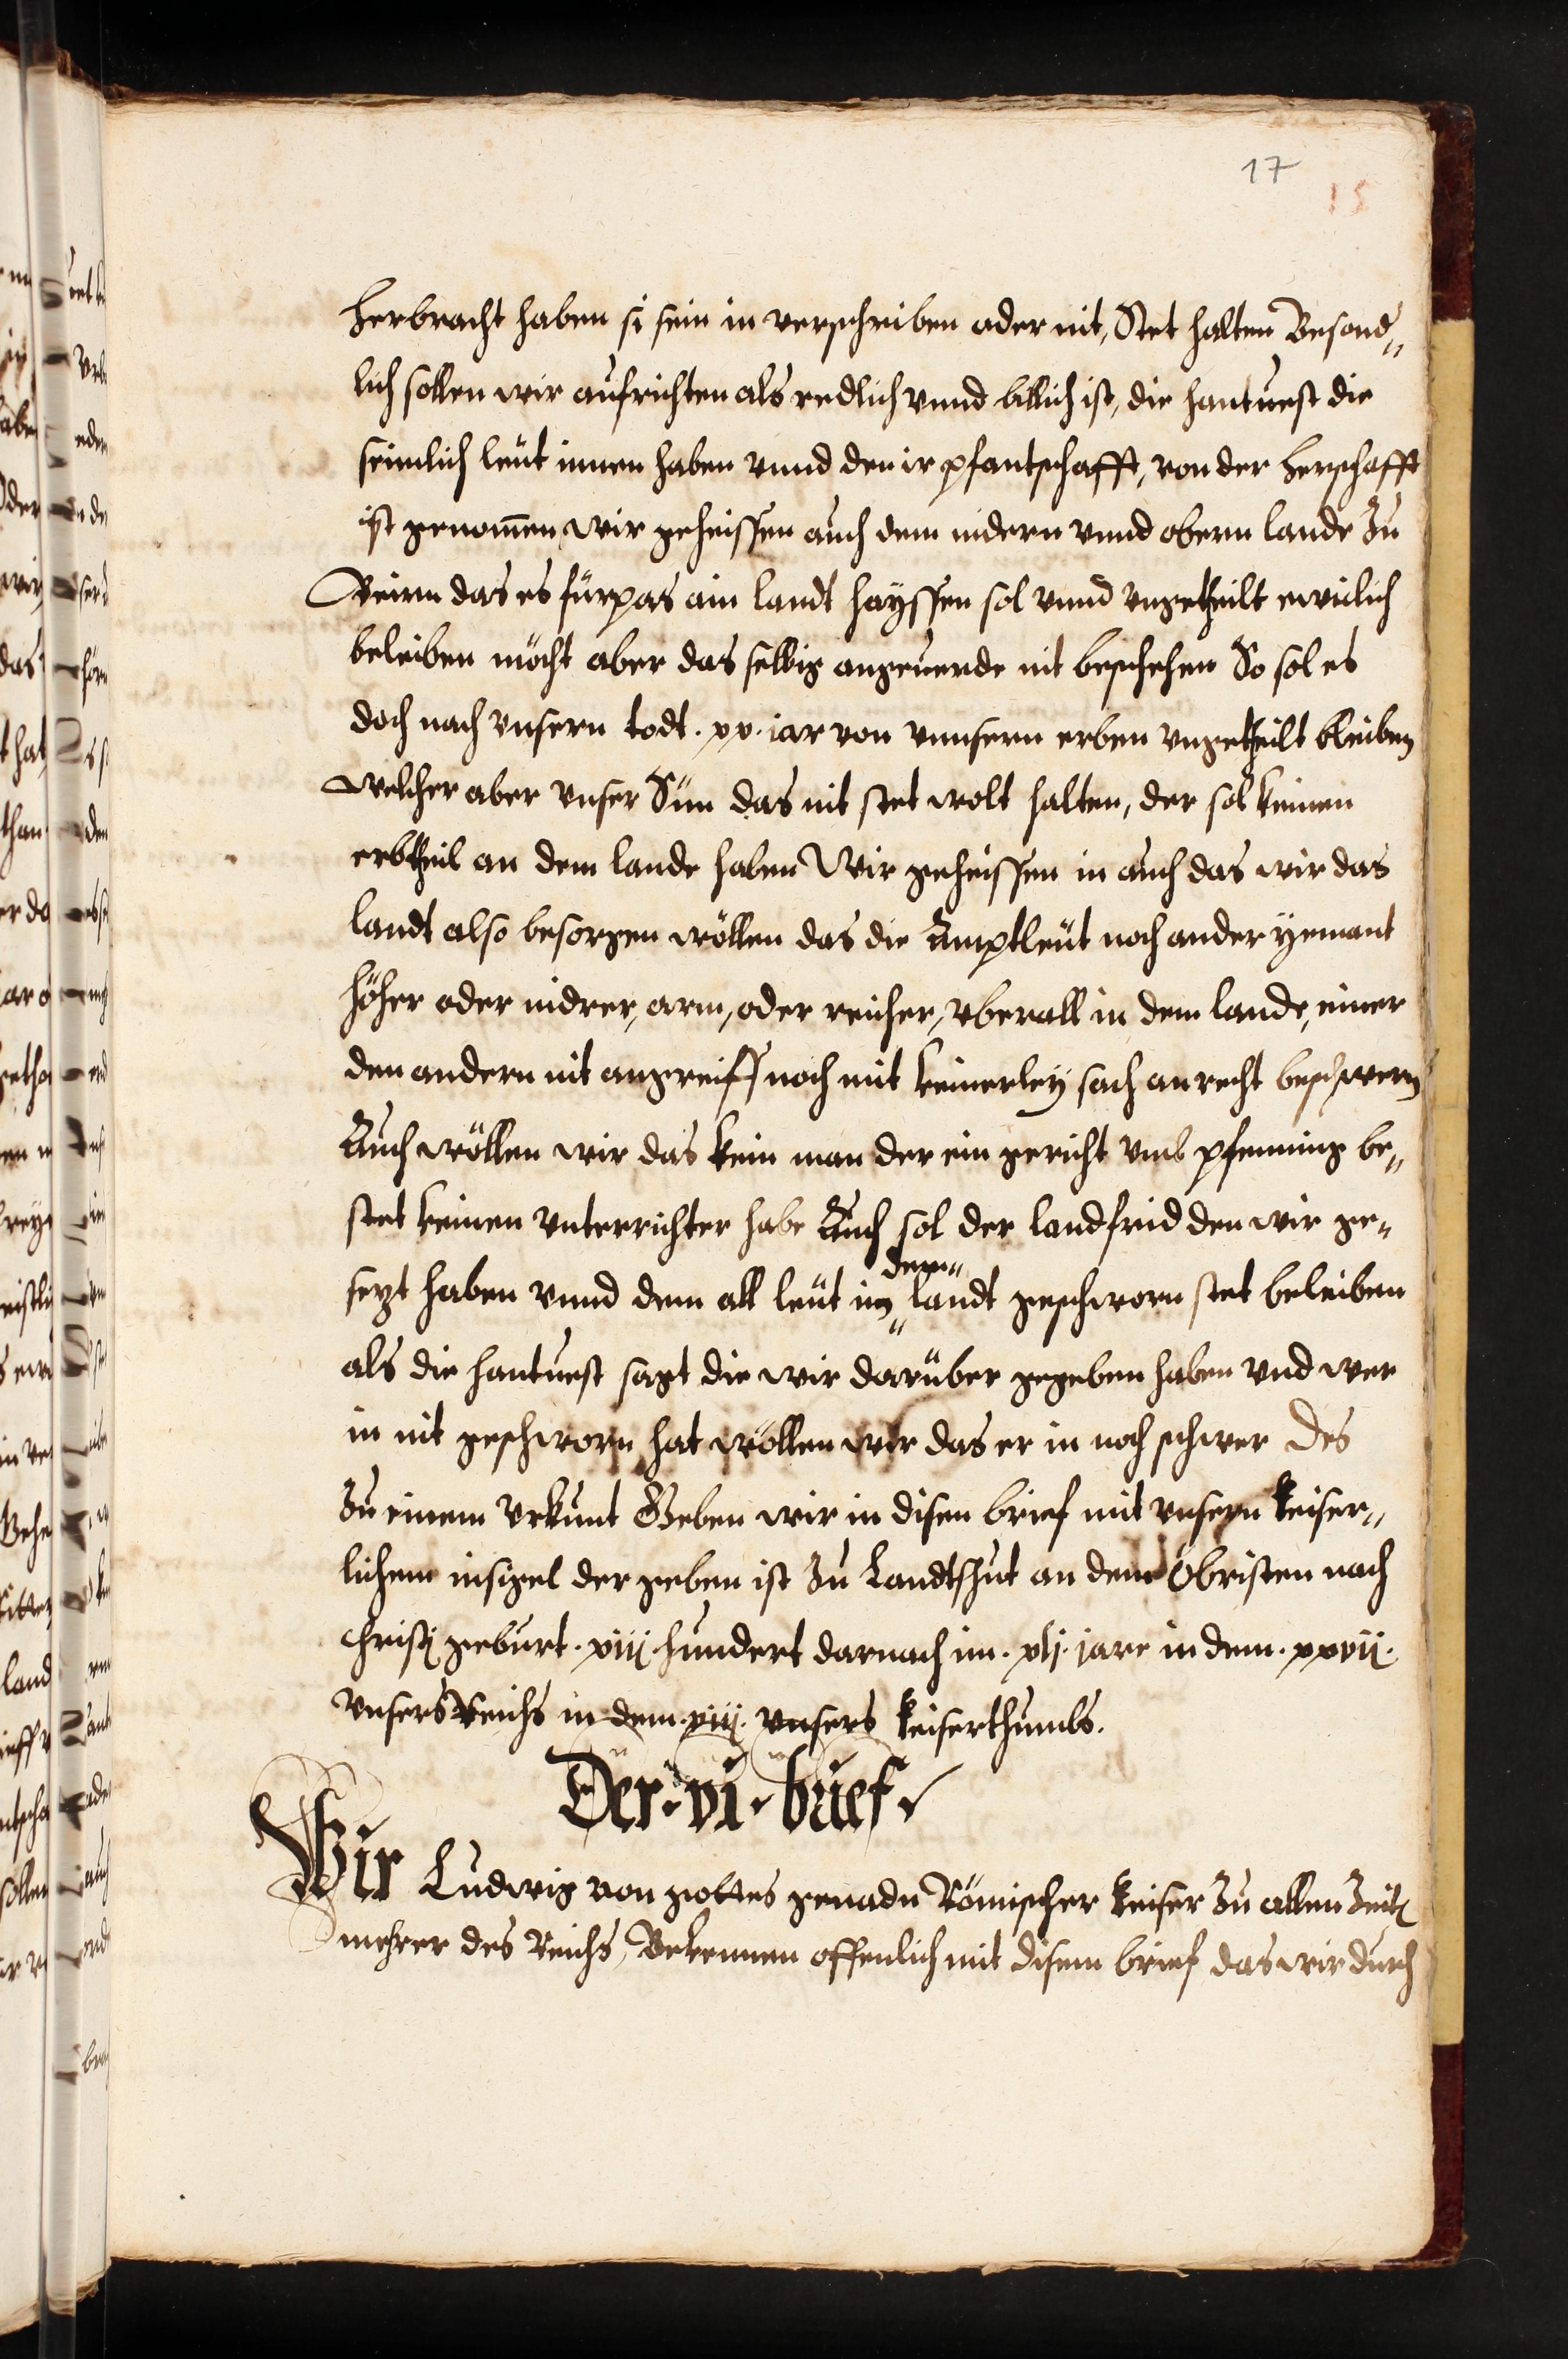 17
15
herbracht haben si sein in verschriben oder nit, Stet halten Besond„
lich sollen wir aufrichten als redlich vnnd billich ist, die hantuest die
seimlich leut innen haben vnnd den ir pfantschafft, von der herschafft
ist genom̄en wir geheissen auch dem nidern vnnd obern lande zu
Beirn das es fürpas ain landt hayssen sol vnnd vngetheilt ewiclich
beleiben möcht aber das selbig angeuerde nit beschehen So sol es
doch nach vnsern todt . xx . iar von vnnsern erben vngetheilt bleiben
welcher aber vnser Sün das nit stet wolt halten, der sol keinen
erbtheil an dem lande haben Wir geheissen in auch das wir das
landt also besorgen wöllen das die Amptleüt noch ander yemant
höher oder nidrer, arm, oder reicher, vberall in dem lande, einer
den andern nit angreiff noch mit keinerley sach an recht beschwern
Auch wöllen wir das kein man der ein gericht vmb pfenning be„
stet keinen vnterrichter habe Auch sol der landfrid den wir ge„
dem„
sezt haben vnnd dem all leüt in„ landt geschworn stet beleiben
als die hantuest sagt die wir darüber gegeben haben vnd wer
in nit geschworn hat wöllen wir das er in noch schwer Des
zu einem vrkunt Geben wir in disen brief mit vnsern keiser„
lichem insigel der geben ist zu Landtshut an dem Obristen nach
christj geburt . xiij . hundert darnach im . xlj . jare in dem . xxvij .
vnsers Reichs in dem . xiij . vnsers keiserthumbs .
Der . vi . brief
Wir Ludwig von gottes genadn Römischer keiser zu allen zeitē
mehrer des Reichs, Bekennen offenlich mit disem brief das wir durch